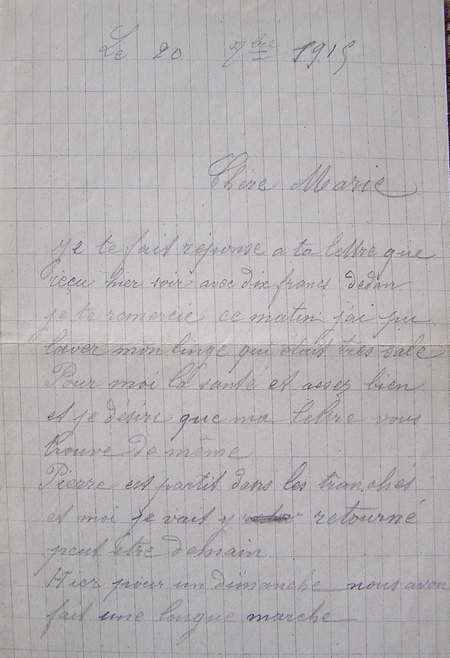 Le 20 7bre 1915
Chère Marie
Je te fait réponse a ta lettre que
reçu hier soir avec dix francs dedan
je te remercie ce matin j'ai pu
laver mon linge qui étais très sale
Pour moi la santé et assez bien
et je désire que ma lettre vous
trouve de même
Pierre est partit dans les tranchés
et moi je vait y retourné
peut être demain
Hier pour un dimanche nous avon
fait une longue marche